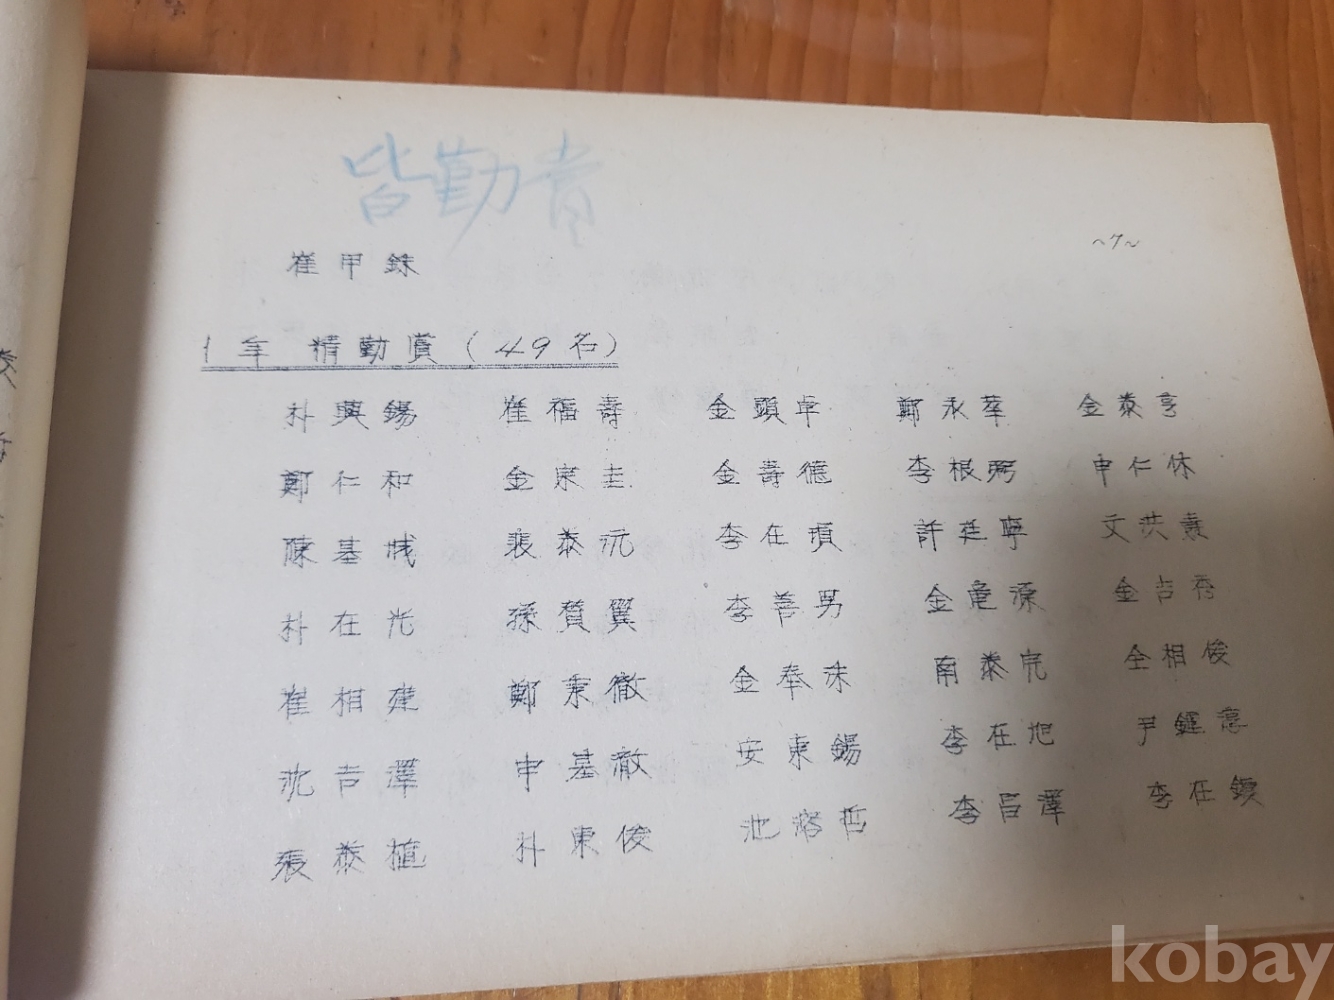 皆勤賞
~7~
崔甲銖
1年 精勤賞(49名)
朴興錫 崔福壽 金顯卓 鄭永華 金泰亨
鄭仁和 金宗圭 金壽德 李根弼 申仁休
陳基 裵泰沅 李在項 許廷寧 文洪熹
朴在光 孫贊翼 李善男 金龍源 金吉秀
崔相建 鄭秉徹 金奉 南泰完 全相俊
沈吉澤 申基澈 安東錫 李在旭 尹鍾
張泰植 朴東俊 池 哲 李昌澤 李在鎬
kobay